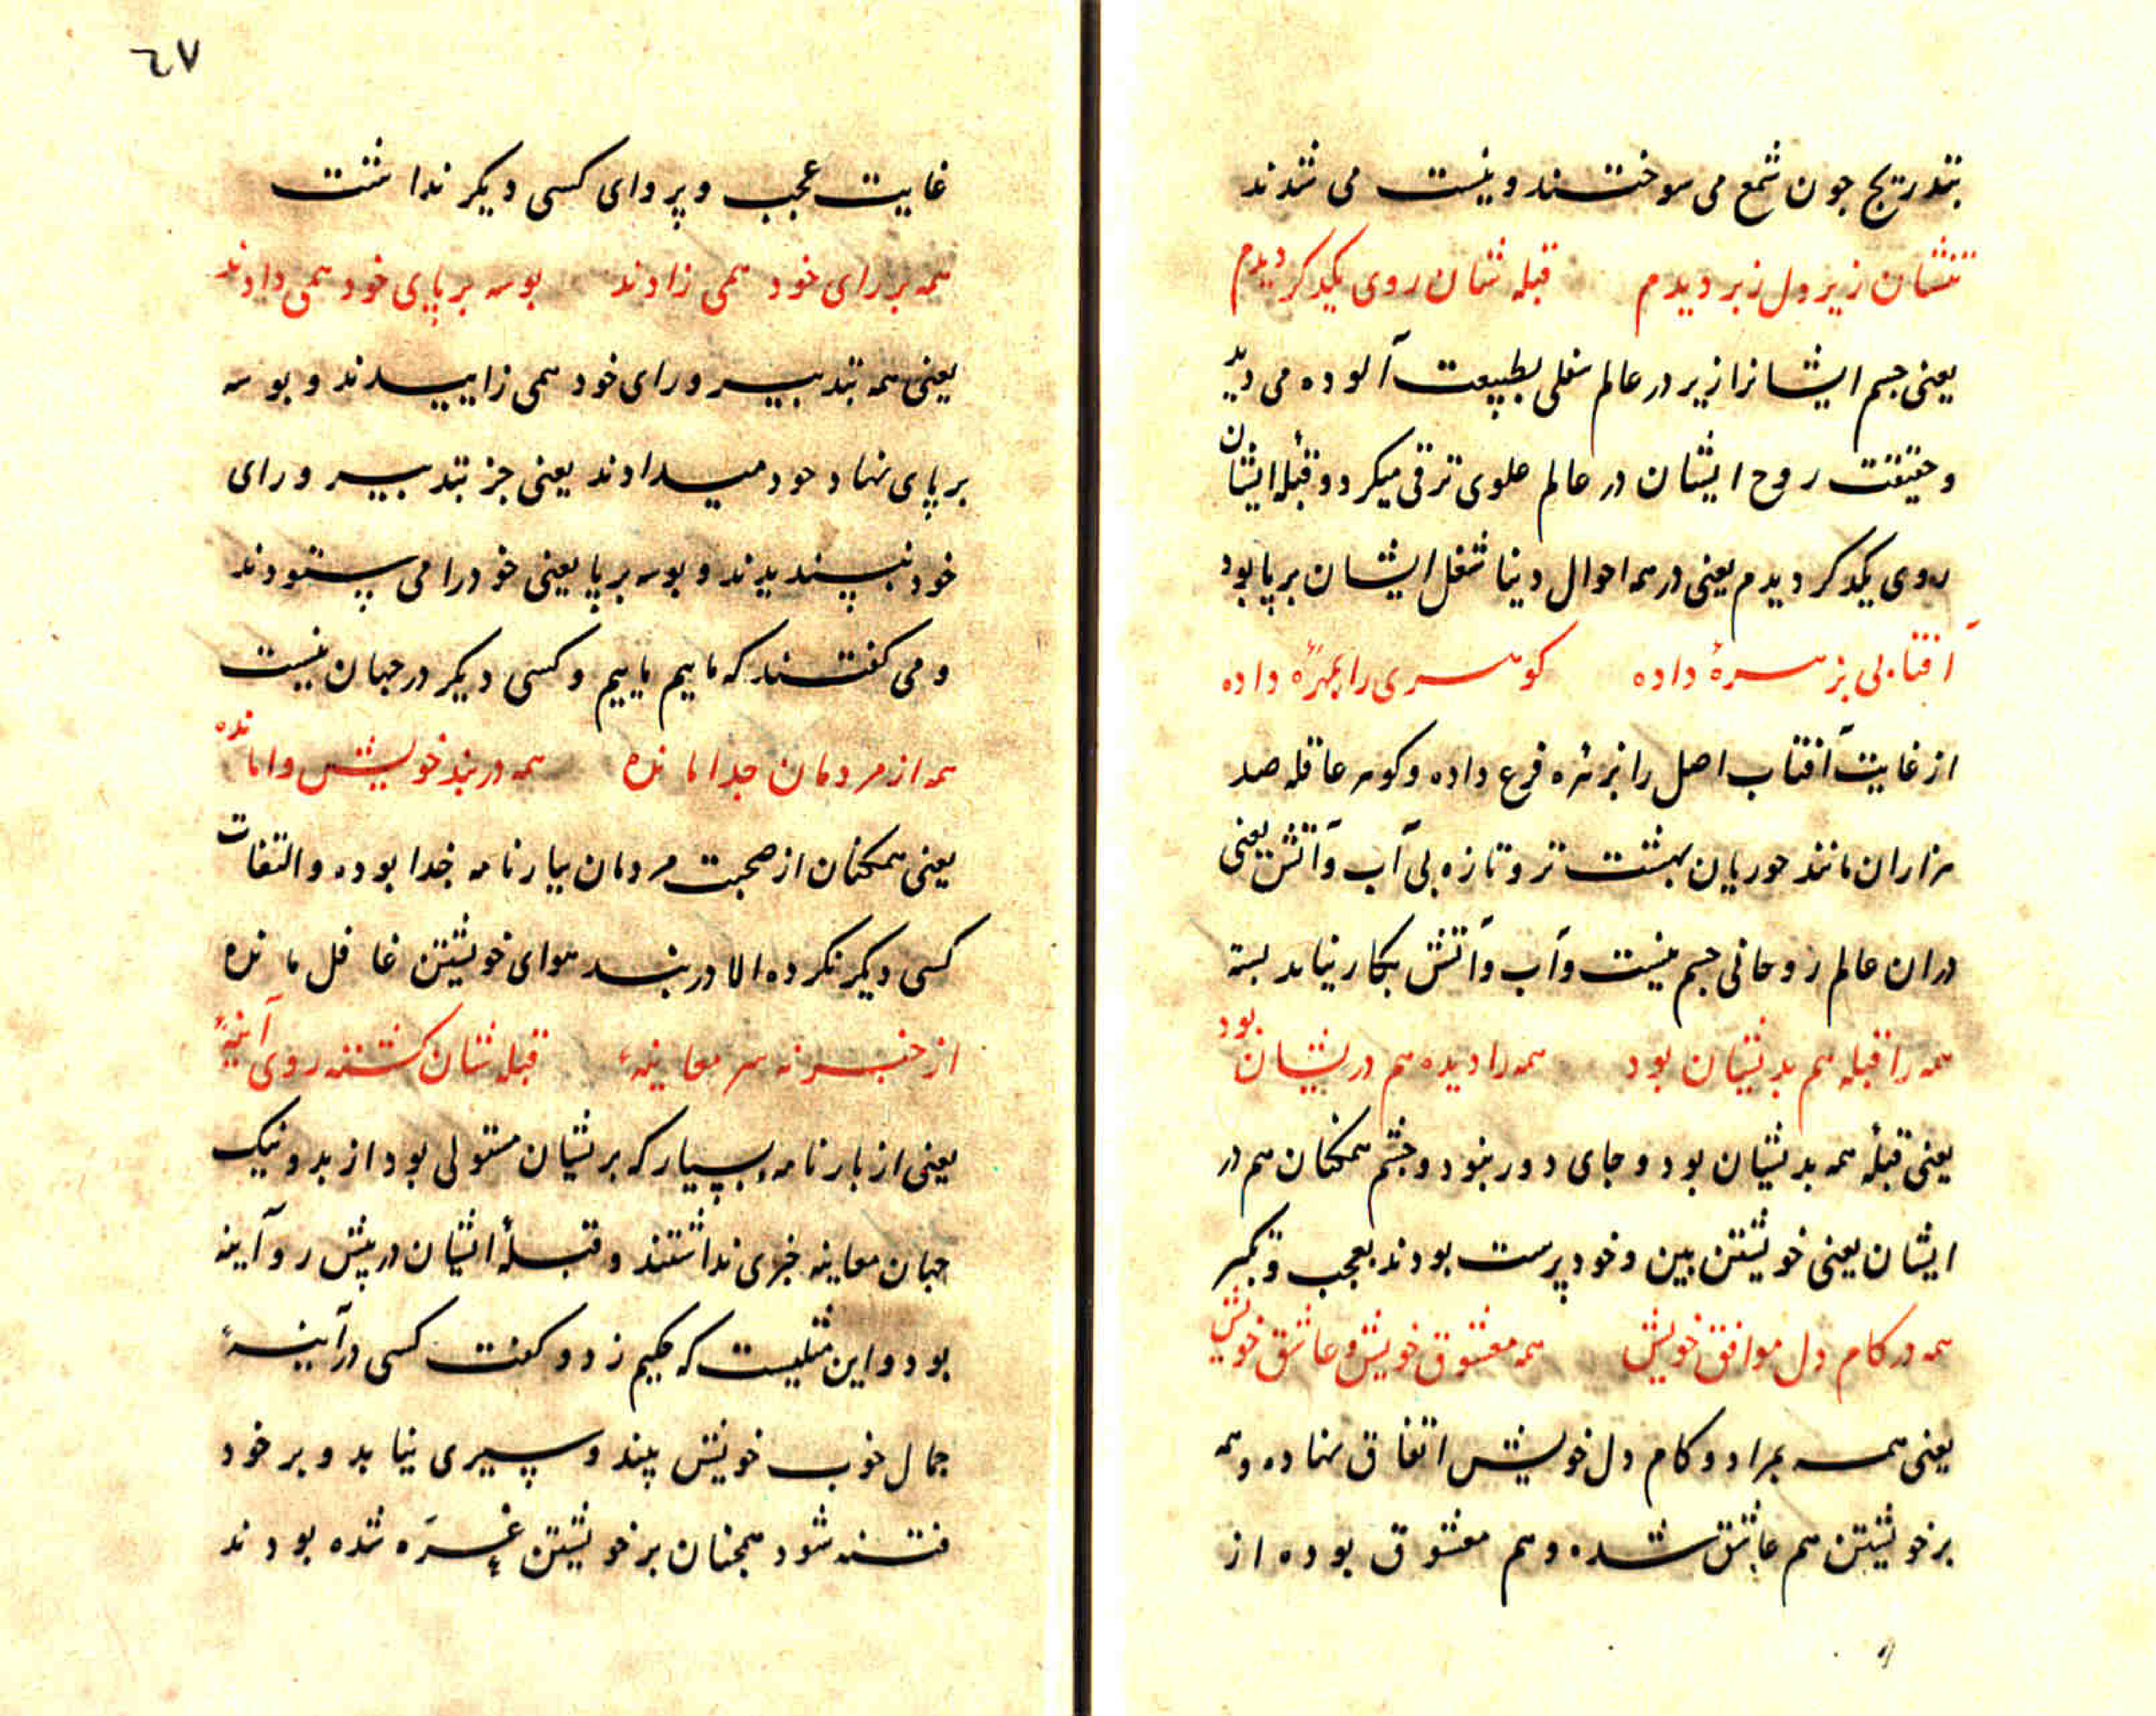 بتدریج جون شمع می سوختند و نیست می شدند
تنشان زیر و دل زبر دیدم قبله شان روی یکدکر دیدم
یعنی جسم ایشانرا زیر در عالم سفلی بطبیعت آلوده می دید
و حقیقت روح ایشان در عالم علوی ترقی میکرد و قبلهٔ ایشان
روی یکدکر دیدم یعنی در همه احوال دینا شغل ایشان برپا بود
آفتابی بزهرهٔ داده کوهری را بمهرهٔ داده
از غایت آفتاب اصل را بزهره فرع داده و کوهر عاقله صد
هزاران مانند حوریان بهشت تر و تازه بی آب و آتش یعنی
دران عالم روحانی جسم نیست و آب و آتش بکار نیاید بسته
همه را قبله هم بدیشان بود همه را دیده هم دریشان بود
یعنی قبلهٔ همه بدیشان بود و جای دور نبود و جشم همکنان هم در
ایشان یعنی خویشتن بین و خود پرست بودند بعجب و تکبر
همه در کام دل موافق خویش همه معشوق خویش و عاشق خویش
یعنی همه بمراد و کام دل خویش اتفاق نهاده و همه
بر خویشتن هم عاشق شده و هم معشوق بوده از
٦٧
غایت عجب و پروای کسی دیکر نداشت
همه بر رای خود همی زادند بوسه بر پای خود همی دادند
یعنی همه بتدبیر و رای خود همی زاییدند و بوسه
بر پای نهاد خود میدادند یعنی جز بتدبیر و رای
خود نپسندیدند و بوسه بر پا یعنی خود را می ستودند
و می کفتند که ماییم ماییم و کسی دیکر در جهان نیست
همه از مردمان جدا مانده همه در بند خویش وا مانده
یعنی همکنان از صحبت مردمان ببارنامه جدا بوده و التفات
کسی دیکر نکرده الا در بند هوای خویشتن غافل مانده
از خبر نه سر معاینهٔ قبله شان کشته روی آینهٔ
یعنی از بارنامه بسیار که بریشان مستولی بود از بد و نیک
جهان معاینه خبری نداشتند و قبلهٔ ایشان در پیش رو آینه
بود و این مثلیست که حکیم زد و کفت کسی در آینهٔ
جمال خوب خویش بیند و سیری نیابد و بر خود
فتنه شود همجنان بر خویشتن غرّه شده بودند